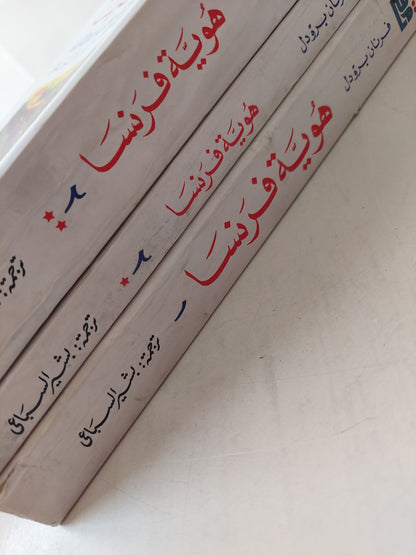 هُويَّة فرَنسَا
٢
ترجمة:
فرنان برودل
هُويَّة فرَنسَا
٢
ترجمة: بشير السباعى
فرنان برودل
هُويَّة فرَنسَا
١
ترجمة: بشير السباعى